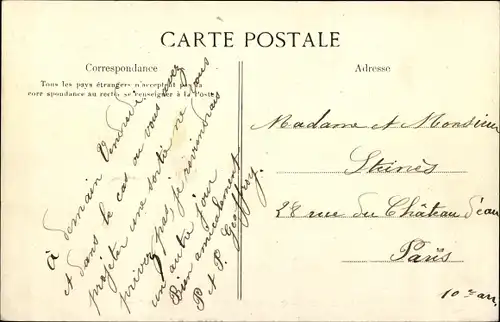 CARTE POSTALE
Correspondance
Tous les pays étrangers n'acceptent pas la
correspondance au recto se renseigner à la Poste
Adresse
À demain Vendredi
et dans le cas ou vous avez
projeter une sortie ne vous
privez pas, je reviendrais
un autre jour
Bien amicalement
P et P. Geoffroy.
Madame et Monsieur
28 rue du Château d'eau
Paris
10e arr.